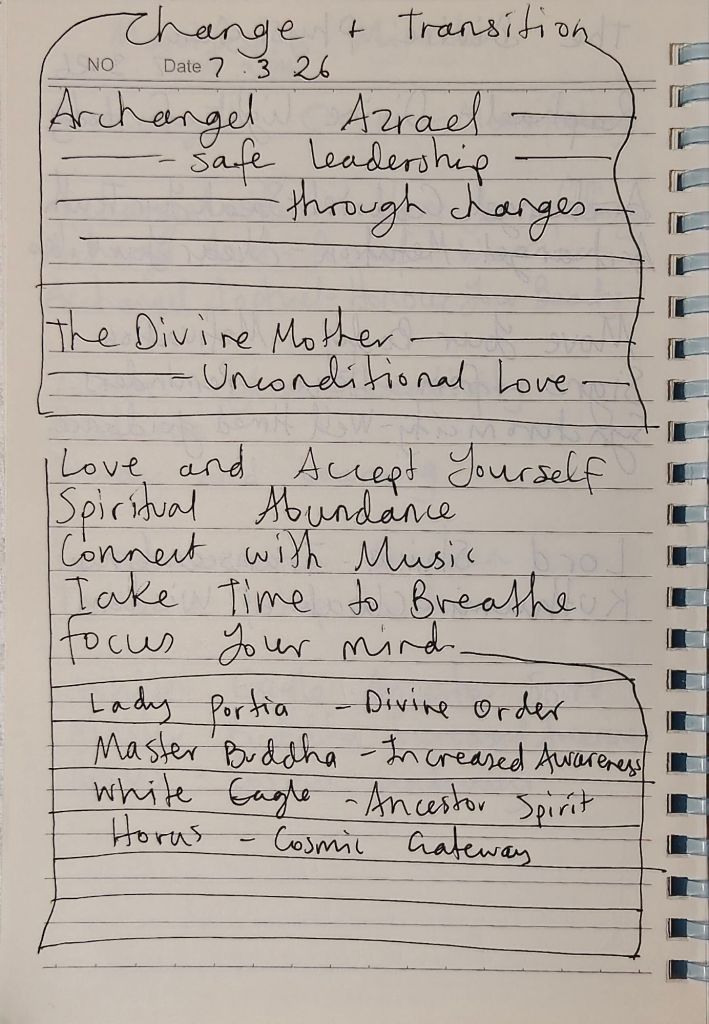 Change + Transition
NO Date 7 . 3 26
Archangel Azrael
- safe leadership
through changes
The Divine Mother
Unconditional Love
Love and Accept Yourself
Spiritual Abundance
Connect with Music
Take Time to Breathe
focus your mind
Lady Portia - Divine Order
Master Buddha - Increased Awareness
White Eagle - Ancestor Spirit
Horus - Cosmic Gateway